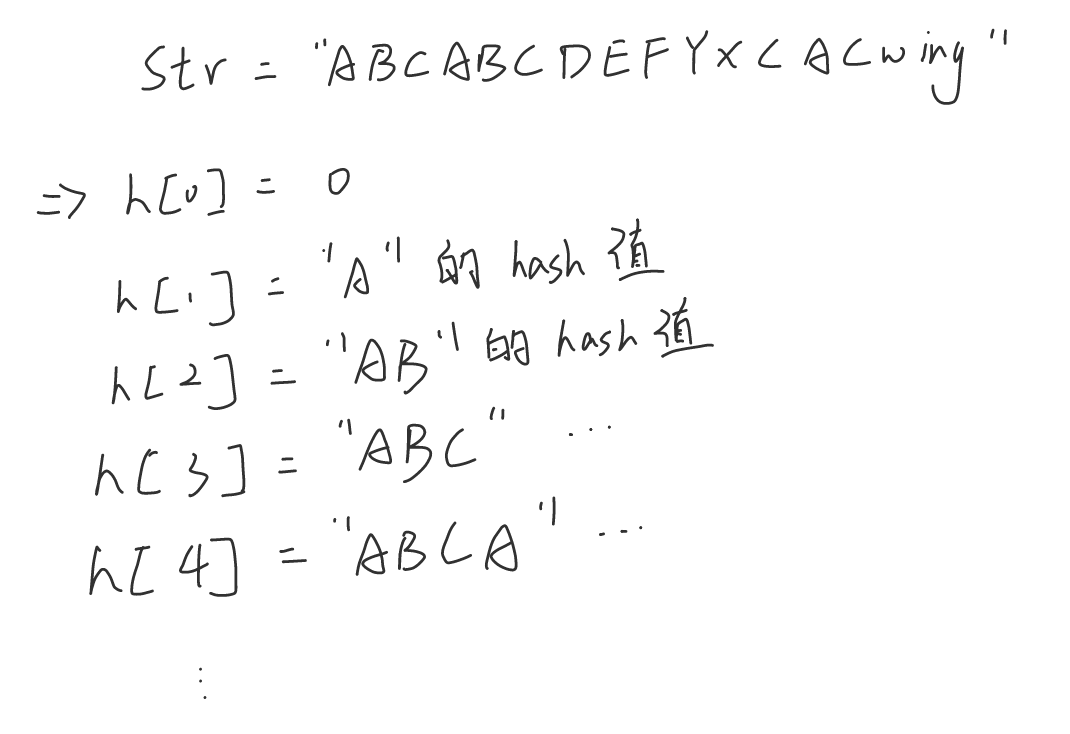 Str = "ABCABCDEFYXCACwing"
=> h[0] = 0
h[1] = "A" 的 hash 值
h[2] = "AB" 的 hash 值
h[3] = "ABC" ...
h[4] = "ABCA" ...
⋮